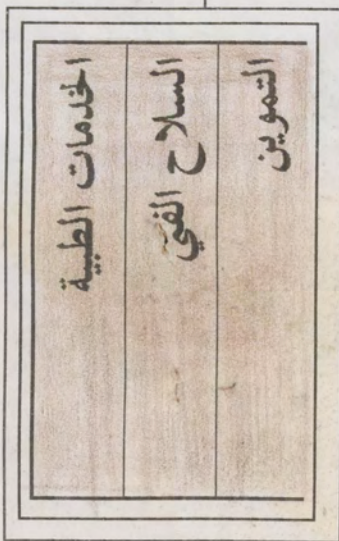 التموين
السلاح الفني
الخدمات الطبية